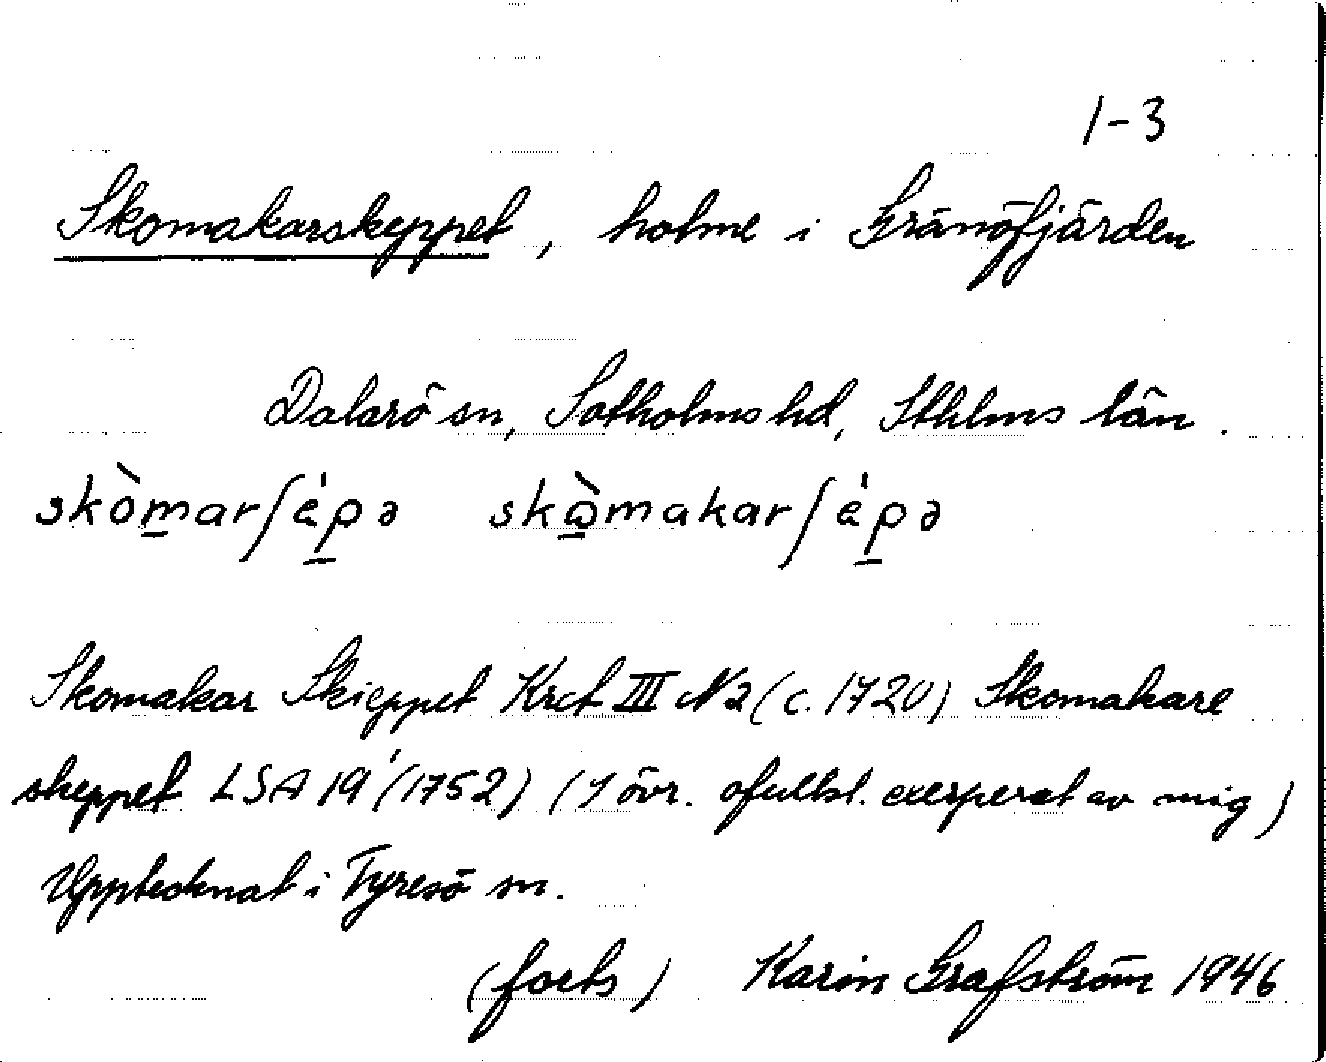 1-3
Skomakarskeppet, holme i Gränöfjärden
Dalarö sn, Sotholms hd, Sthlms län.
skòmarʃépə skòmakarʃépə
Skomakar Skieppet Krct III N2 (c. 1720) Skomakare
skeppet LSA 19' (1752) (I övr. ofullst. excerperat av mig)
Upptecknat i Tyresö sn.
(forts) Karin Grafström 1946